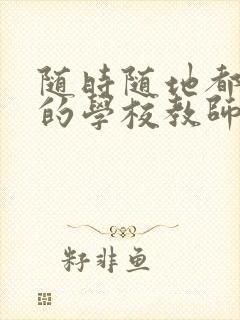 随時随地都
的學校教師
籽非鱼